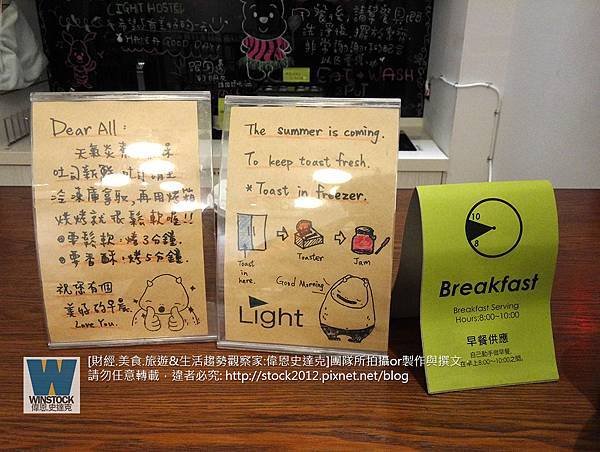 LIGHT HOSTEL
HAVE A GOOD DAY
EAT → WASH
→ PUT
Dear All:
天氣炎熱
吐司新鮮 吐司請至
冷凍庫拿取,再用烤箱
烤烤就很鬆軟喔!!
要鬆軟:烤3分鐘.
要香酥:烤5分鐘.
祝您有個
美好的早晨
Love You.
The summer is coming.
To keep toast fresh.
*Toast in freezer.
Toast
in
here.
Toaster
Jam
Good Morning
Light
10
8
Breakfast
Breakfast Serving
Hours:8:00~10:00
早餐供應
自己動手做早餐,
在桌上8:00~10:00之間。
WINSTOCK
偉恩.史達克
[財經.美食.旅遊&生活趨勢觀察家:偉恩史達克]團隊所拍攝or製作與撰文
請勿任意轉載,違者必究: http://stock2012.pixnet.net/blog